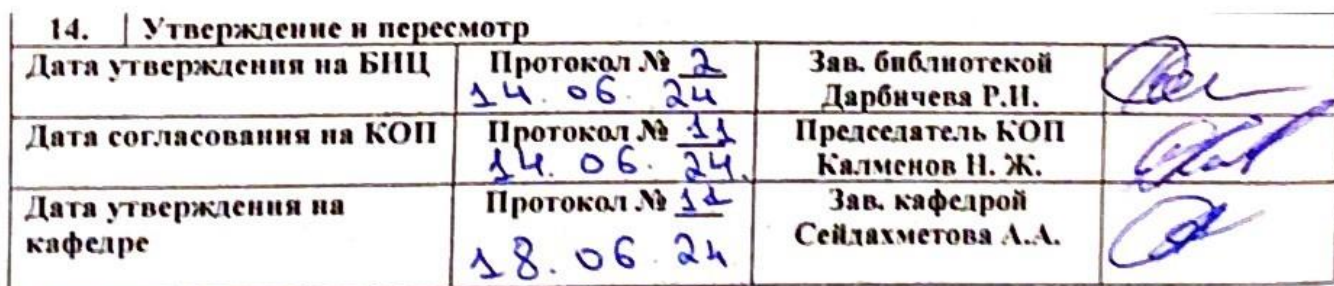 14. Утверждение и пересмотр
Дата утверждения на БИЦ Протокол № 2 Зав. библиотекой
14. 06. 24 Дарбичева Р.И.
Дата согласования на КОП Протокол № 11 Председатель КОП
14. 06. 24. Калменов Н. Ж.
Дата утверждения на кафедре Протокол № Зав. кафедрой
18. 06. 24 Сейдахметова А.А.